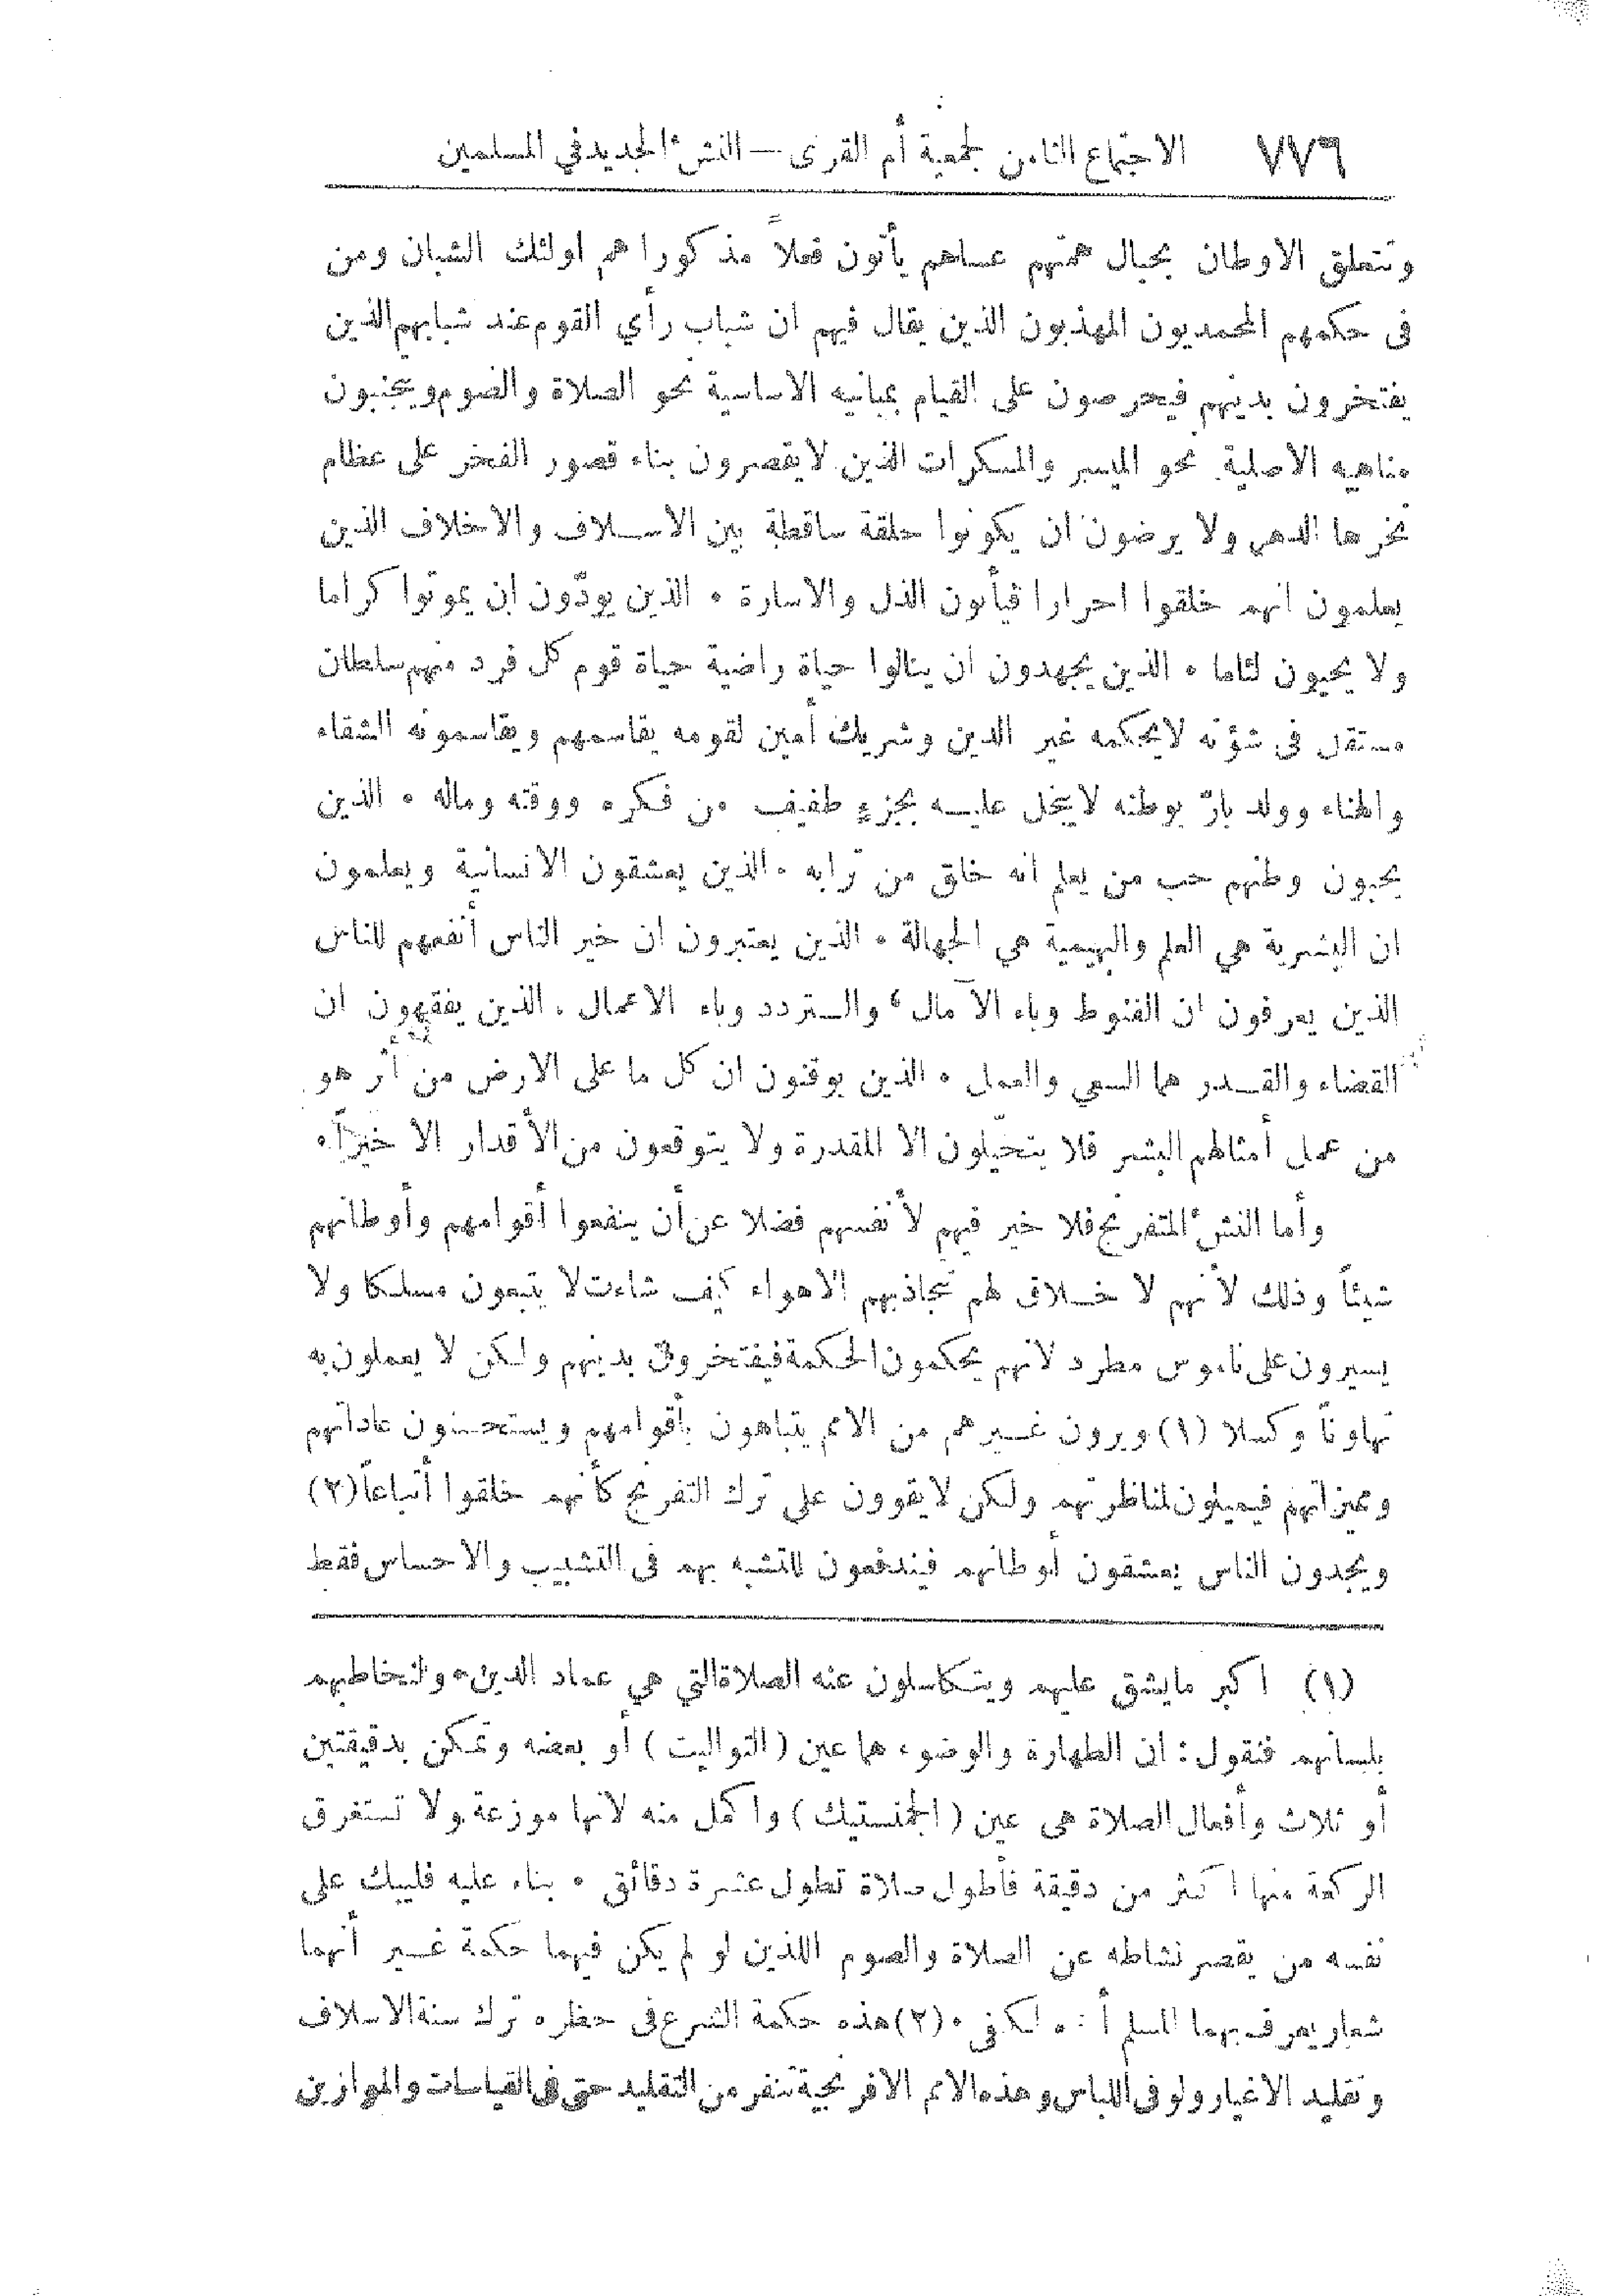 ٧٧٦ الاجتماع الثامن لجمعية أم القرى — النشء الجديد في المسلمين
وتتعلق الاوطان بحبال همتهم عساهم يأتون فعلاً مذكورا هم اولئك الشبان ومن
فى حكمهم المحمديون المهذبون الذين يقال فيهم ان شباب رأي القوم عند شبابهم الذين
يفتخرون بدينهم فيحرصون على القيام بمبانيه الاساسية نحو الصلاة والصوم ويجنبون
مناهيه الاصلية نحو الميسر والمسكرات الذين لا يقصرون بناء قصور الفخر على عظام
نخرها الدهر ولا يرضون ان يكونوا حلقة ساقطة بين الاسلاف والاخلاف الذين
يعلمون انهم خلقوا احرارا فيأبون الذل والاسارة ٠ الذين يودّون ان يموتوا كراما
ولا يحيون لئاما ٠ الذين يجهدون ان ينالوا حياة راضية حياة قوم كل فرد منهم سلطان
مستقل فى شؤنه لا يحكمه غير الدين وشريك أمين لقومه يقاسمهم ويقاسمونه الشقاء
والهناء وولد بارّ بوطنه لا يبخل عليه بجزءٍ طفيف من فكره ووقته وماله ٠ الذين
يحبون وطنهم حب من يعلم انه خلق من ترابه ٠ الذين يعشقون الانسانية ويعلمون
ان البشرية هي العلم والبهيمية هي الجهالة ٠ الذين يعتبرون ان خير الناس أنفعهم للناس
الذين يعرفون ان القنوط وباء الآمال ، والتردد وباء الاعمال . الذين يفقهون ان
القضاء والقدر هما السعي والعمل ٠ الذين يوقنون ان كل ما على الارض من أثر هو
من عمل أمثالهم البشر فلا يتخيّلون الا المقدرة ولا يتوقعون من الأقدار الا خيراً ٠
وأما النشء المتفرنج فلا خير فيهم لأنفسهم فضلا عن أن ينفعوا أقوامهم وأوطانهم
شيئاً وذلك لأنهم لا خلاق لهم تجاذبهم الاهواء كيف شاءت لا يتبعون مسلكا ولا
يسيرون على ناموس مطرد لانهم يحكمون الحكمة فيفتخرون بدينهم ولكن لا يعملون به
تهاوناً وكسلا (١) ويرون غيرهم من الامم يتباهون بأقوامهم ويستحسنون عاداتهم
ومميزاتهم فيميلون لمناظرتهم ولكن لا يقوون على ترك التفرنج كأنهم خلقوا أتباعاً (٢)
ويجدون الناس يعشقون أوطانهم فيندفعون للتشبه بهم فى التشبيب والاحساس فقط
(١) اكبر ما يشق عليهم ويتكاسلون عنه الصلاة التي هي عماد الدين ٠ ولنخاطبهم
بلسانهم فنقول : ان الطهارة والوضوء هما عين (التواليت) أو بعضه وتمكن بدقيقتين
أو ثلاث وأفعال الصلاة هى عين (الجمنستيك) واكمل منه لانها موزعة ولا تستغرق
الركعة منها اكثر من دقيقة فأطول صلاة تطول عشرة دقائق ٠ بناء عليه فليبك على
نفسه من يقصر نشاطه عن الصلاة والصوم اللذين لو لم يكن فيهما حكمة غير أنهما
شعار يعرف بهما المسلم لكفى ٠ (٢) هذه حكمة الشرع فى حظره ترك سنة الاسلاف
وتقليد الاغيار ولو فى اللباس وهذه الامم الافرنجية تنفر من التقليد حتى فى القياسات والموازين